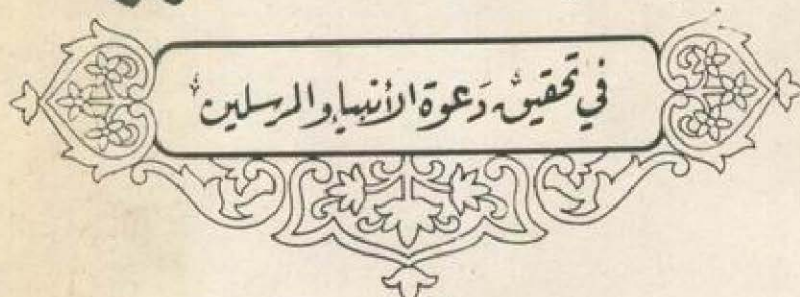 في تحقيق دَعوة الأنبياء والمرسلين